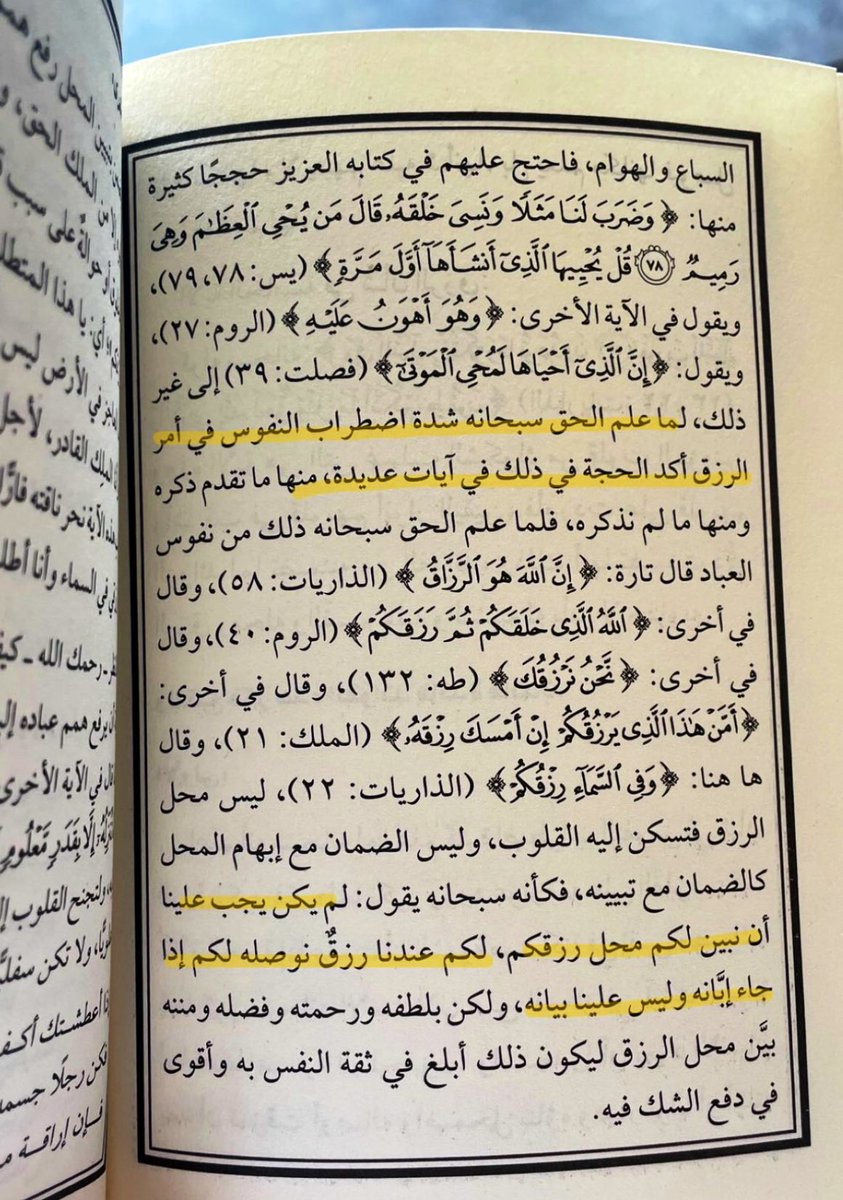 السباع والهوام، فاحتج عليهم في كتابه العزيز حججًا كثيرة
منها: ﴿ وَضَرَبَ لَنَا مَثَلًا وَنَسِيَ خَلْقَهُۥ قَالَ مَن يُحْىِ ٱلْعِظَٰمَ وَهِىَ
رَمِيمٌ ۝٧٨ قُلْ يُحْيِيهَا ٱلَّذِىٓ أَنشَأَهَآ أَوَّلَ مَرَّةٍ ﴾ (يس: ٧٨، ٧٩)،
ويقول في الآية الأخرى: ﴿ وَهُوَ أَهْوَنُ عَلَيْهِ ﴾ (الروم: ٢٧)،
ويقول: ﴿ إِنَّ ٱلَّذِىٓ أَحْيَاهَا لَمُحْىِ ٱلْمَوْتَىٰٓ ﴾ (فصلت: ٣٩) إلى غير
ذلك، لما علم الحق سبحانه شدة اضطراب النفوس في أمر
الرزق أكد الحجة في ذلك في آيات عديدة، منها ما تقدم ذكره
ومنها ما لم نذكره، فلما علم الحق سبحانه ذلك من نفوس
العباد قال تارة: ﴿ إِنَّ ٱللَّهَ هُوَ ٱلرَّزَّاقُ ﴾ (الذاريات: ٥٨)، وقال
في أخرى: ﴿ ٱللَّهُ ٱلَّذِى خَلَقَكُمْ ثُمَّ رَزَقَكُمْ ﴾ (الروم: ٤٠)، وقال
في أخرى: ﴿ نَّحْنُ نَرْزُقُكَ ﴾ (طه: ١٣٢)، وقال في أخرى:
﴿ أَمَّنْ هَٰذَا ٱلَّذِى يَرْزُقُكُمْ إِنْ أَمْسَكَ رِزْقَهُۥ ﴾ (الملك: ٢١)، وقال
ها هنا: ﴿ وَفِى ٱلسَّمَآءِ رِزْقُكُمْ ﴾ (الذاريات: ٢٢)، ليس محل
الرزق فتسكن إليه القلوب، وليس الضمان مع إبهام المحل
كالضمان مع تبيينه، فكأنه سبحانه يقول: لم يكن يجب علينا
أن نبين لكم محل رزقكم، لكم عندنا رزقٌ نوصله لكم إذا
جاء إبَّانه وليس علينا بيانه، ولكن بلطفه ورحمته وفضله ومننه
بيَّن محل الرزق ليكون ذلك أبلغ في ثقة النفس به وأقوى
في دفع الشك فيه.